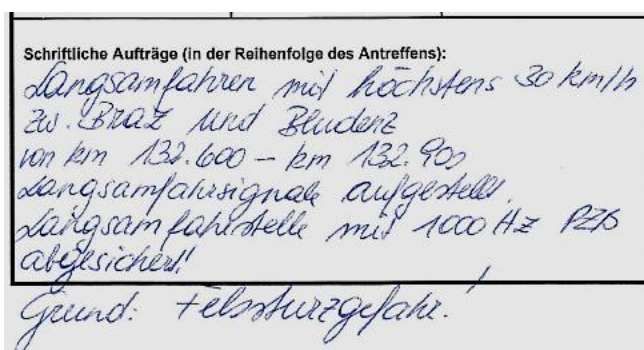 Schriftliche Aufträge (in der Reihenfolge des Antreffens):
Langsamfahren mit höchstens 30 km/h
zw. Braz und Bludenz
von km 132.600 - km 132.900
Langsamfahrsignale aufgestellt.
Langsamfahrstelle mit 1000 Hz PZB
abgesichert!
Grund: Felssturzgefahr!